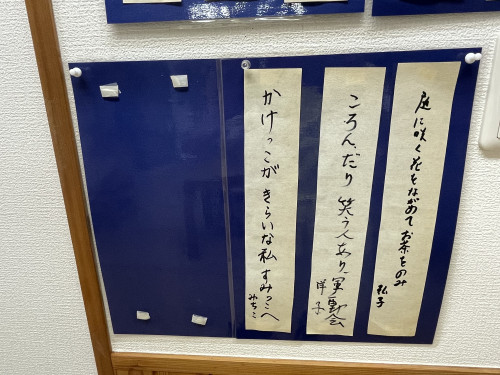 庭に咲く花をながめてお茶をのみ
弘子
ころんだり笑う人あり、運動会
洋子
かけっこがきらいな私すみっこへ
みちこ